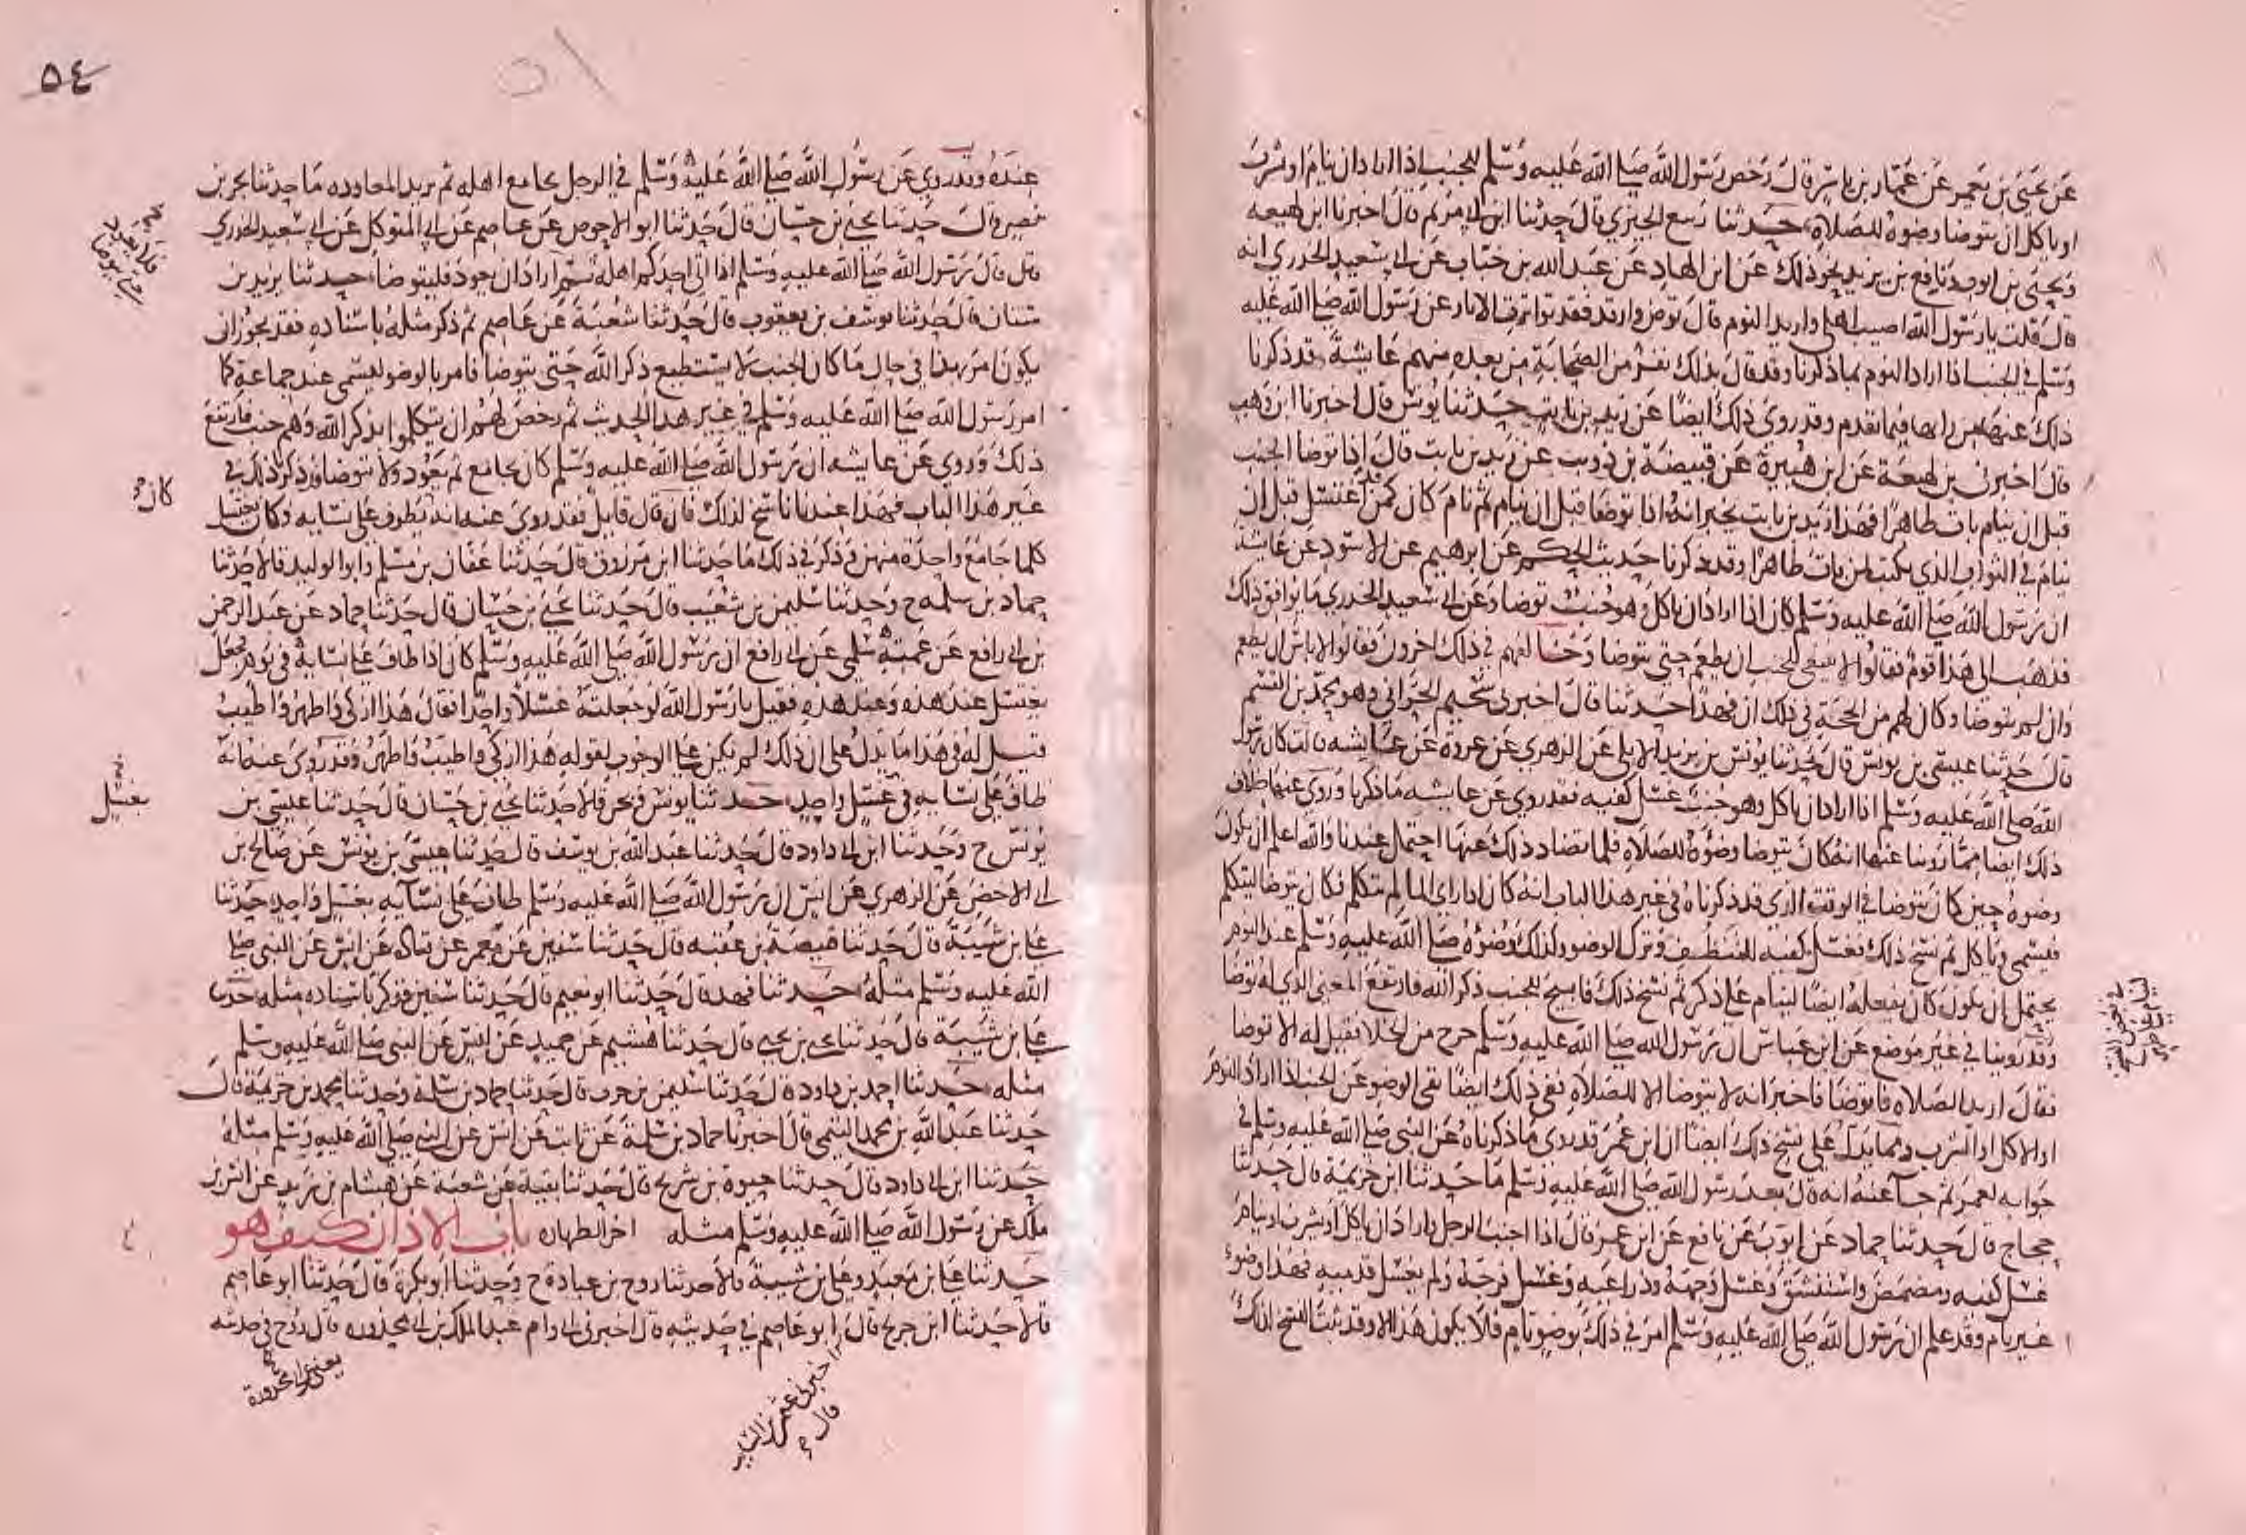 عن يحيى بن يعمر عن عمار بن ياسر قال رخص رسول الله صلى الله عليه وسلم للجنب اذا اراد ان ينام او يشرب
او ياكل ان يتوضا وضوه للصلاة حدثنا ربيع الجيزي قال حدثنا ابن ابي مريم قال اخبرنا ابن لهيعة
ويحيى بن ايوب ونافع بن يزيد نحو ذلك عن ابن الهاد عن عبد الله بن خباب عن ابي سعيد الخدري انه
قال قلت يا رسول الله اصيب اهلي واريد النوم قال توض وارقد فقد تواترت الاثار عن رسول الله صلى الله عليه
وسلم في الجنب اذا اراد النوم بما ذكرنا وقد قال بذلك نفر من الصحابة من بعده منهم عايشة قد ذكرنا
ذلك عنها من رايها فيما تقدم وقد روي ذلك ايضا عن زيد بن ثابت حدثنا يونس قال اخبرنا ابن وهب
قال اخبرني بن لهيعة عن ابن هبيرة عن قبيصة بن ذويب عن زيد بن ثابت قال اذا توضا الجنب
قبل ان ينام بات طاهرا فهذا زيد بن ثابت يخبر انه اذا توضا قبل ان ينام ثم نام كان كمن اغتسل قبل ان
ينام في الثواب الذي يكتب لمن بات طاهرا وقد ذكرنا حديث الحكم عن ابرهيم عن الاسود عن عايشة
ان رسول الله صلى الله عليه وسلم كان اذا اراد ان ياكل وهو جنب توضا وعن ابي سعيد الخدري ما يوافق ذلك
فذهب الى هذا قوم فقالوا لا ينبغي للجنب ان يطعم حتى يتوضا وخالفهم في ذلك اخرون فقالوا لا باس ان يطعم
وان لم يتوضا وكان لهم من الحجة في ذلك ان فهدا حدثنا قال اخبرني سحيم الحراني وهو محمد بن القسم
قال حدثنا عيسى بن يونس قال حدثنا يونس بن يزيد الايلي عن الزهري عن عروة عن عايشه قالت كان رسول
الله صلى الله عليه وسلم اذا اراد ان ياكل وهو جنب غسل كفيه فقد روي عن عايشه ما ذكرنا وروي عنها خلاف
ذلك ايضا مما روينا عنها انه كان يتوضا وضوه للصلاة فلما تضاد ذلك عنها احتمل عندنا والله اعلم ان يكون
وضوه حين كان يتوضا في الوقت الذي قد ذكرناه في غير هذا الباب انه كان اذا راى الما لم يتكلم فكان يتوضا ليتكلم
فيسمي وياكل ثم نسخ ذلك فغسل كفيه للتنظيف وترك الوضو وكذلك وضوه صلى الله عليه وسلم عند النوم
يحتمل ان يكون كان يفعله ايضا لينام على ذكر ثم نسخ ذلك فابيح للجنب ذكر الله فارتفع المعنى الذي له توضا
وقد روينا في غير موضع عن ابن عباس ان رسول الله صلى الله عليه وسلم خرج من الخلا فقيل له الا توضا
فقال اريد الصلاة فاتوضا فاخبر انه لا يتوضا الا للصلاة نفي ذلك ايضا نفى الوضو عن الجنب اذا اراد النوم
او الاكل او الشرب ومما يدل على نسخ ذلك ايضا ان ابن عمر قد روى ما ذكرناه عن النبي صلى الله عليه وسلم في
جوابه لعمر ثم جا عنه انه قال بعد رسول الله صلى الله عليه وسلم ما حدثنا ابن خزيمة قال حدثنا
حجاج قال حدثنا حماد عن ايوب عن نافع عن ابن عمر قال اذا اجنب الرجل واراد ان ياكل او يشرب او ينام
غسل كفيه ومضمض واستنشق وغسل وجهه وذراعيه وغسل فرجه ولم يغسل قدميه فهذا وضوء
غير تام وقد علم ان رسول الله صلى الله عليه وسلم امر في ذلك بوضو تام فلا يكون هذا الا وقد ثبت النسخ لذلك
٥٤
عنده وقد روي عن رسول الله صلى الله عليه وسلم في الرجل يجامع اهله ثم يريد المعاودة ما حدثنا بحر بن
نصر قال حدثنا يحيى بن حسان قال حدثنا ابو الاحوص عن عاصم عن ابي المتوكل عن ابي سعيد الخدري
قال قال رسول الله صلى الله عليه وسلم اذا اتى احدكم اهله ثم اراد ان يعود فليتوضا حدثنا يزيد بن
سنان قال حدثنا يوسف بن يعقوب قال حدثنا شعبة عن عاصم ثم ذكر مثله باسناده فقد يجوز ان
يكون امر بهذا في حال ما كان الجنب لا يستطيع ذكر الله حتى يتوضا فامر بالوضو ليسمي عند جماعه كما
امر رسول الله صلى الله عليه وسلم في غير هذا الحديث ثم رخص لهم ان يتكلموا بذكر الله وهم جنب فارتفع
ذلك وروي عن عايشه ان رسول الله صلى الله عليه وسلم كان يجامع ثم يعود ولا يتوضا وقد ذكرنا ذلك في
غير هذا الباب فهذا عندنا ناسخ لذلك فان قال قايل فقد روي عنه انه يطوف على نسايه وكان يغتسل
كلما جامع واحدة منهن وذكر في ذلك ما حدثنا ابن مرزوق قال حدثنا عفان بن مسلم وابو الوليد قالا حدثنا
حماد بن سلمه ح وحدثنا سليمن بن شعيب قال حدثنا يحيى بن حسان قال حدثنا حماد عن عبد الرحمن
بن ابي رافع عن عمته سلمى عن ابي رافع ان رسول الله صلى الله عليه وسلم كان اذا طاف على نسايه في يوم فجعل
يغتسل عند هذه وعند هذه فقيل يا رسول الله لو جعلته غسلا واحدا فقال هذا ازكى واطهر واطيب
قيل له في هذا ما يدل على ان ذلك لم يكن على الوجوب لقوله هذا ازكى واطيب واطهر وقد روي عنه انه
طاف على نسايه في غسل واحد حدثنا يونس وبحر قالا حدثنا يحيى بن حسان قال حدثنا عيسى بن
يونس ح وحدثنا ابن ابي داود قال حدثنا عبد الله بن يوسف قال حدثنا عيسى بن يونس عن صالح بن
ابي الاخضر عن الزهري عن انس ان رسول الله صلى الله عليه وسلم طاف على نسايه بغسل واحد حدثنا
علي بن شيبة قال حدثنا قبيصة بن عقبه قال حدثنا سفين عن معمر عن قتادة عن انس عن النبي صلى
الله عليه وسلم مثله حدثنا فهد قال حدثنا ابو نعيم قال حدثنا سفين فذكر باسناده مثله حدثنا
علي بن شيبة قال حدثنا يحيى بن يحيى قال حدثنا هشيم عن حميد عن انس عن النبي صلى الله عليه وسلم
مثله حدثنا احمد بن داود قال حدثنا سليمن بن حرب قال حدثنا حماد بن سلمة وحدثنا محمد بن خزيمة قال
حدثنا عبد الله بن محمد التيمي قال اخبرنا حماد بن سلمة عن ثابت عن انس عن النبي صلى الله عليه وسلم مثله
حدثنا ابن ابي داود قال حدثنا حيوة بن شريح قال حدثنا بقية عن شعبة عن هشام بن زيد عن انس بن
ملك عن رسول الله صلى الله عليه وسلم مثله اخر الطهاره باب الاذان كيف هو
حدثنا علي بن معبد وعلي بن شيبة قالا حدثنا روح بن عبادة ح وحدثنا ابو بكرة قال حدثنا ابو عاصم
قالا حدثنا ابن جريج قال ابو عاصم في حديثه قال اخبرني ابي وام عبد الملك بن ابي محذوره قال روح في حديثه
كان
بغسل
اخبرني عثمن بن السايب
قال
يعني عن ابي محذورة